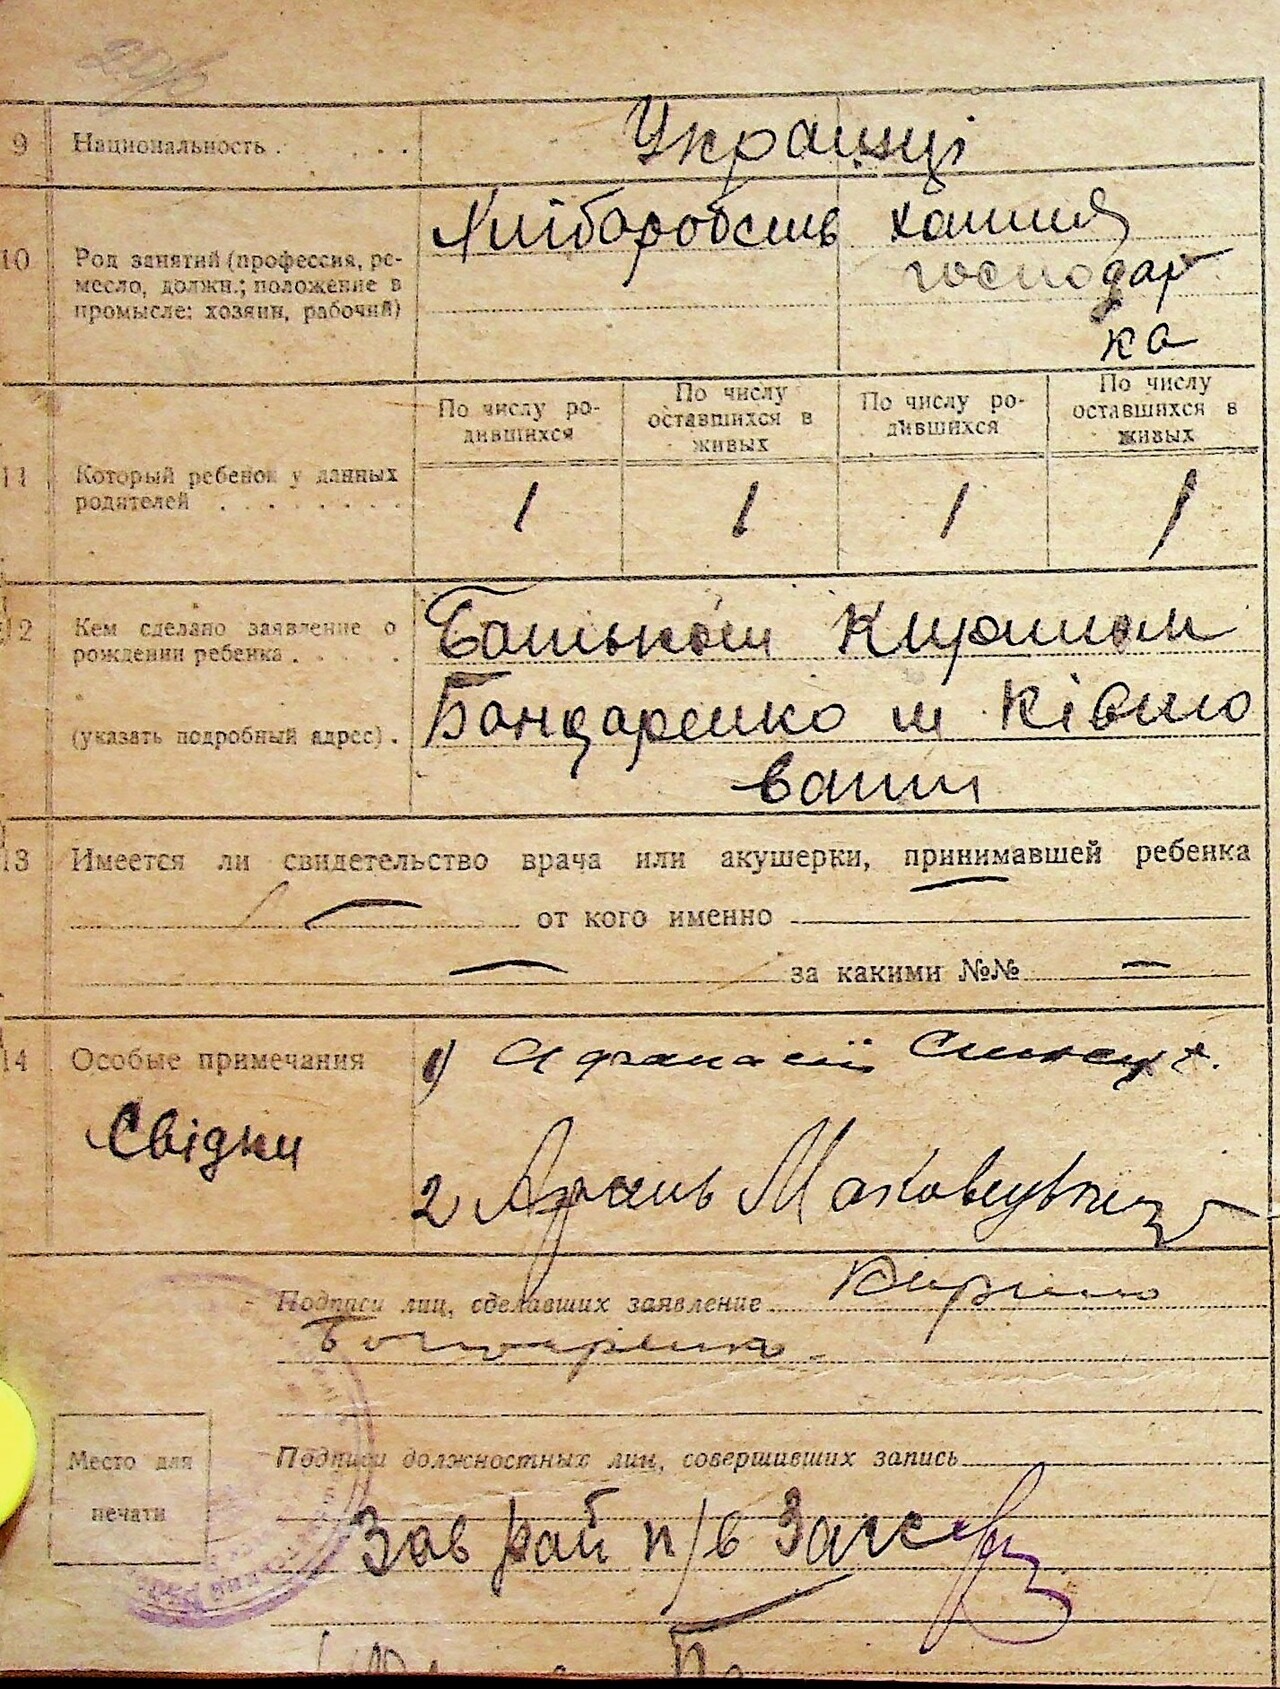 9 Национальность . . . . . Українці
10 Род занятий (профессия, ре-
месло, должн.; положение в
промысле: хозяин, рабочий)
Хліборобень хатня
господар
ка
11 Который ребенок у данных
родителей . . . . . . . .
По числу ро-
дившихся
По числу
оставшихся в
живых
По числу ро-
дившихся
По числу
оставшихся в
живых
1 1 1 1
12 Кем сделано заявление о
рождении ребенка . . . . .
(указать подробный адрес) .
Батьком Кирилом
Бондаренко м Ківшо
вати
13 Имеется ли свидетельство врача или акушерки, принимавшей ребенка
— от кого именно
— за какими №№ —
14 Особые примечания
Свідки
1) Афанасій
2 Маковецький
Подписи лиц, сделавших заявление Кирило
Бондаренко
Место для
печати
Подписи должностных лиц, совершивших запись
Зав рай п/в Загс